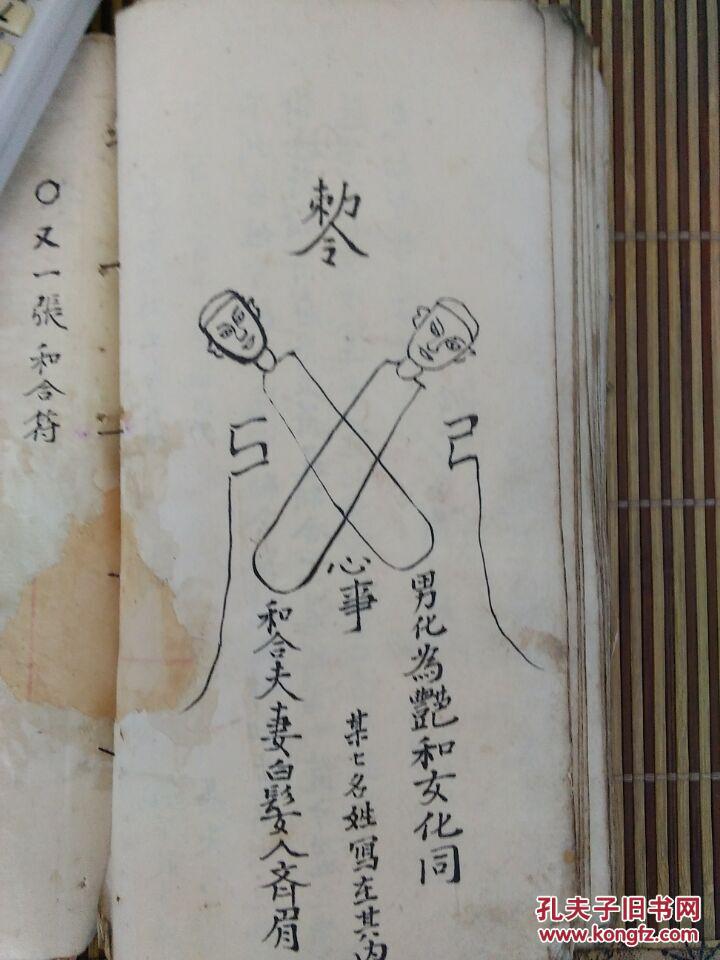 ○又一張和合符
敕令
男化為艷和女化同
心事
某七名姓寫在其內
和合夫妻白髮人齊眉
孔夫子旧书网
www.kongfz.com